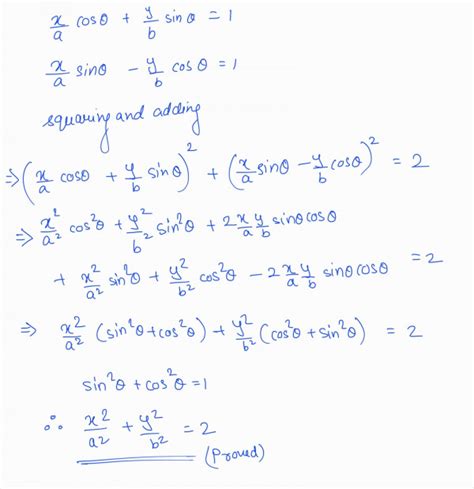 x/a cosθ + y/b sinθ = 1
x/a sinθ - y/b cosθ = 1
squaring and adding
⇒ (x/a cosθ + y/b sinθ)² + (x/a sinθ - y/b cosθ)² = 2
⇒ x²/a² cos²θ + y²/b² sin²θ + 2 x/a y/b sinθ cosθ
+ x²/a² sin²θ + y²/b² cos²θ - 2 x/a y/b sinθ cosθ = 2
⇒ x²/a² (sin²θ + cos²θ) + y²/b² (cos²θ + sin²θ) = 2
sin²θ + cos²θ = 1
∴ x²/a² + y²/b² = 2
(Proved)